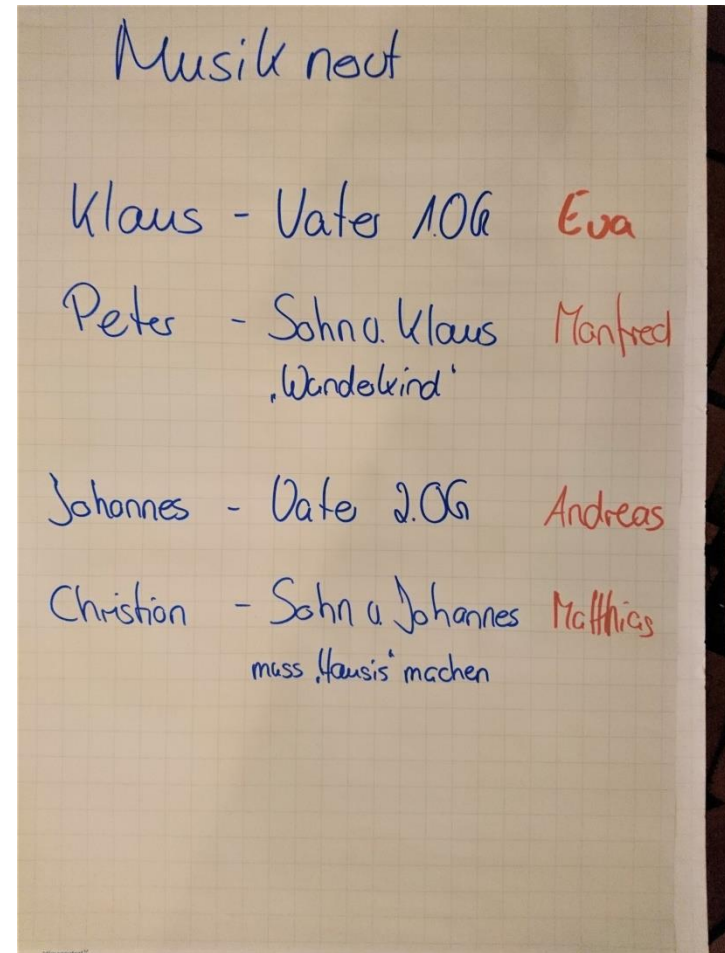 Musik nout
Klaus - Vater 1.OG Eva
Peter - Sohn v. Klaus Manfred
"Wanderkind"
Johannes - Vate 2.OG Andreas
Christian - Sohn v Johannes Matthias
muss "Hausis" machen